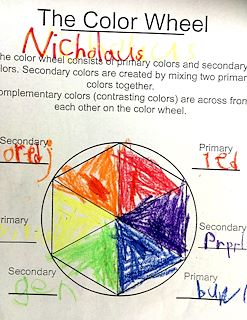 The Color Wheel
Nicholaus
he color wheel consists of primary colors and secondary
lors. Secondary colors are created by mixing two primar
colors together.
omplementary colors (contrasting colors) are across from
each other on the color wheel.
Secondary
oredj
Primary
red
rimary
Secondary
Prprl
Secondary
gen
Primary